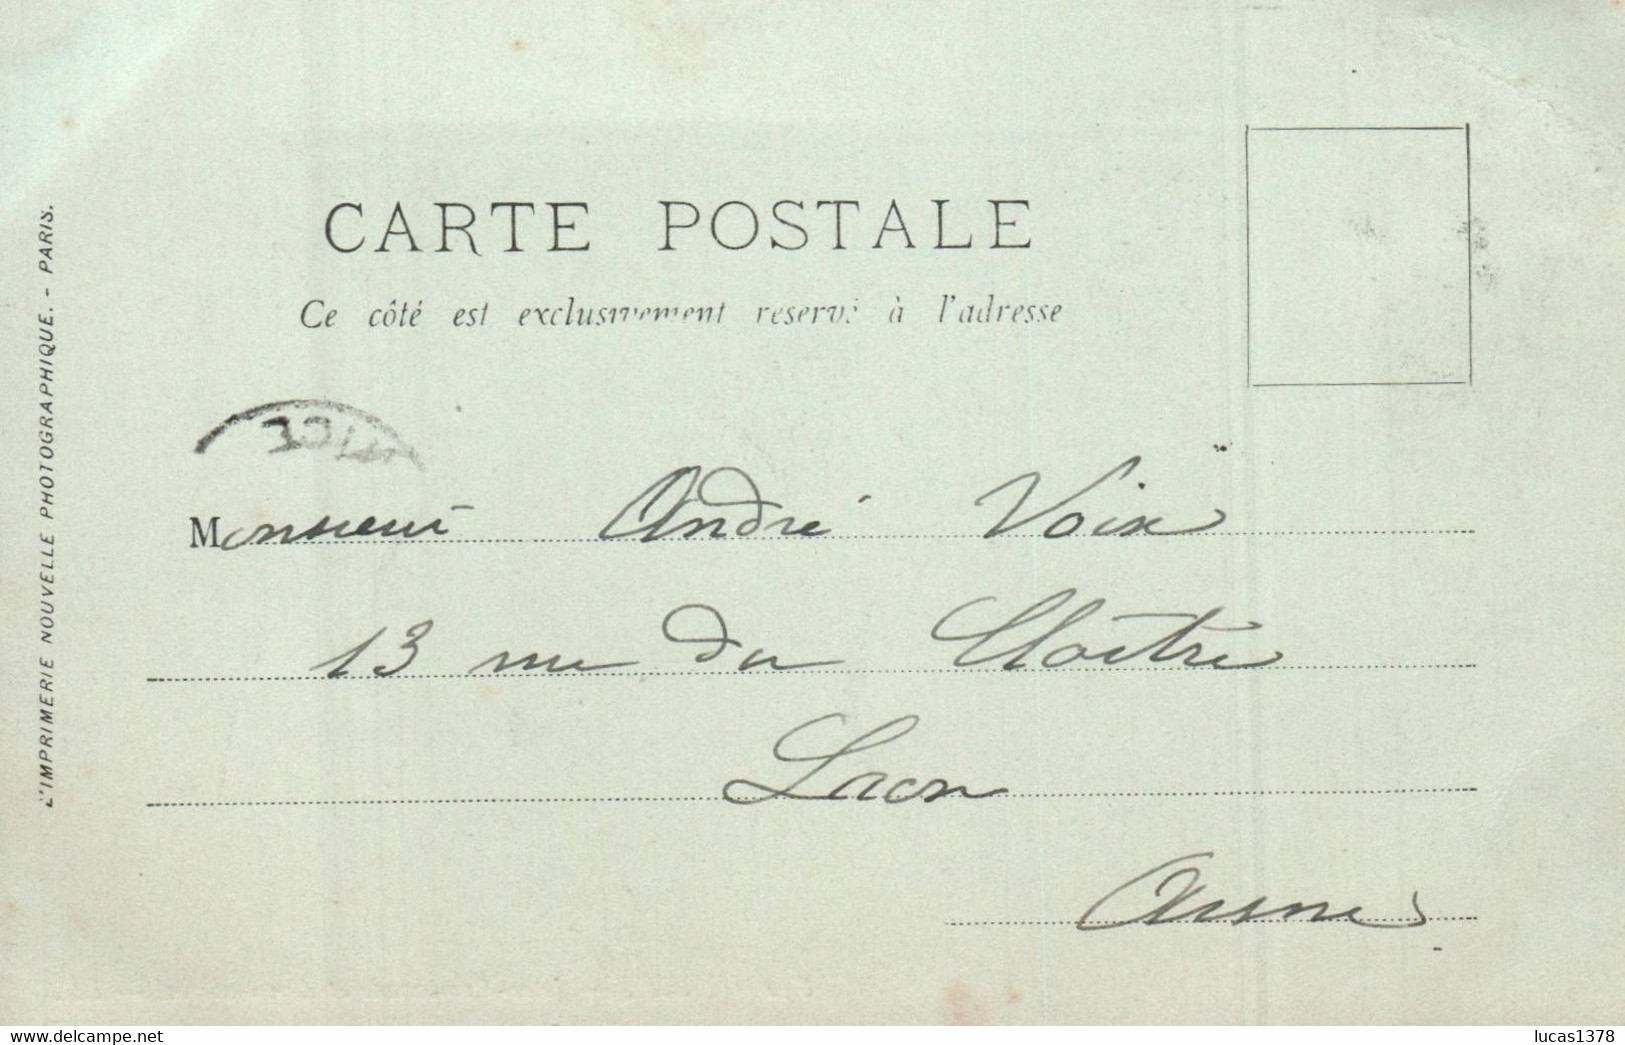 CARTE POSTALE
Ce côté est exclusivement reservé à l'adresse
L'IMPRIMERIE NOUVELLE PHOTOGRAPHIQUE. - PARIS.
Monsieur André Voix
13 rue du Cloître
Laon
Aisne
www.delcampe.net
lucas1378